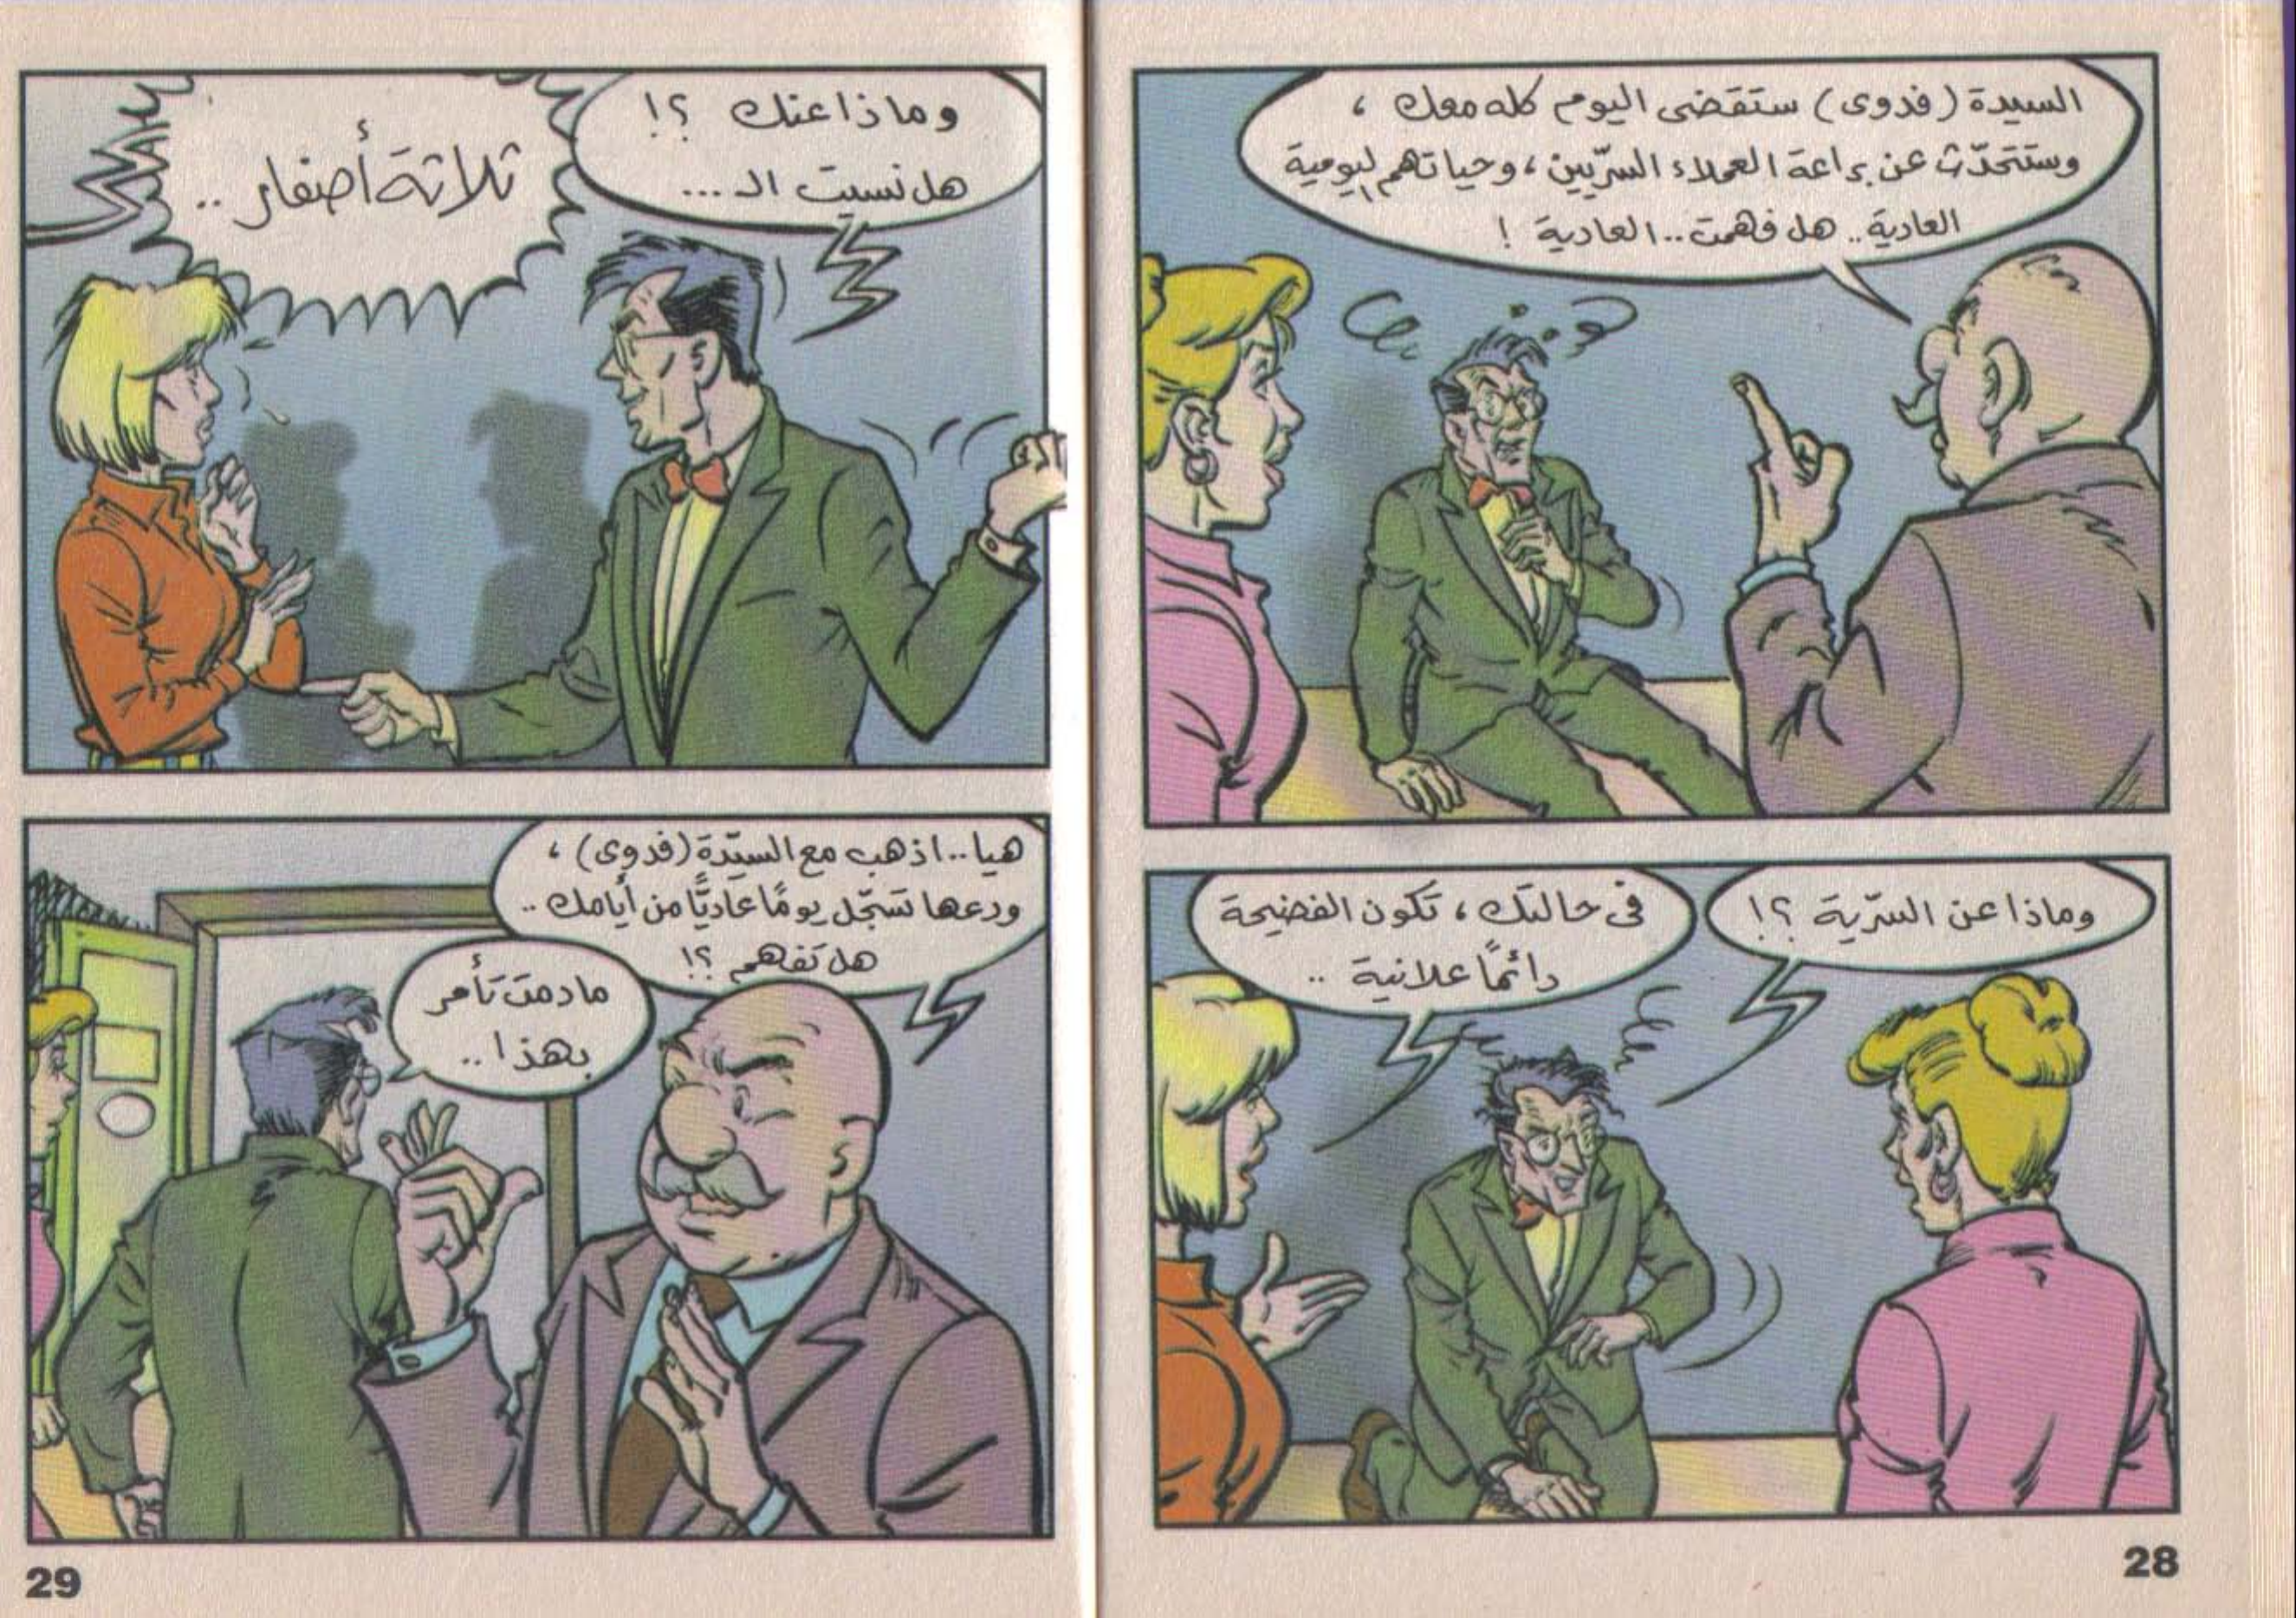 السيدة (فدوى) ستقضى اليوم كله معك ،
وستتحدّث عن براعة العملاء السرّيين ، وحياتهم اليومية
العادية .. هل فهمت .. العادية !
وماذا عن السرّية ؟!
فى حالتك ، تكون الفضيحة
دائمًا علانية ..
28
وماذا عنك ؟!
هل نسيت الـ ...
ثلاثة أصفار ..
هيا .. اذهب مع السيّدة (فدوى) ،
ودعها تسجّل يومًا عاديًّا من أيامك ..
هل تفهم ؟!
مادمت تأمر
بهذا ..
29